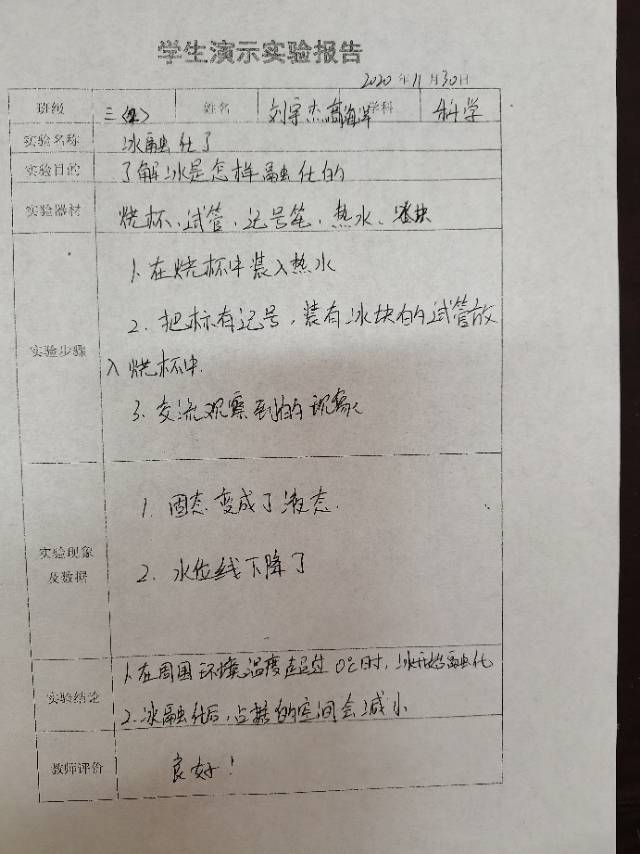 学生演示实验报告
2020年11月30日
班级 三 姓名 刘宇杰高海洋 学科 科学
实验名称 冰融化了
实验目的 了解冰是怎样融化的
实验器材 烧杯、试管、记号笔、热水、冰块
实验步骤
1. 在烧杯中装入热水
2. 把标有记号,装有冰块的试管放
入烧杯中.
3. 交流观察到的现象
实验现象
及数据
1. 固态变成了液态.
2. 水位线下降了
实验结论
1. 在周围环境温度超过0℃时,冰开始融化
2. 冰融化后,占据的空间会减小
教师评价 良好!